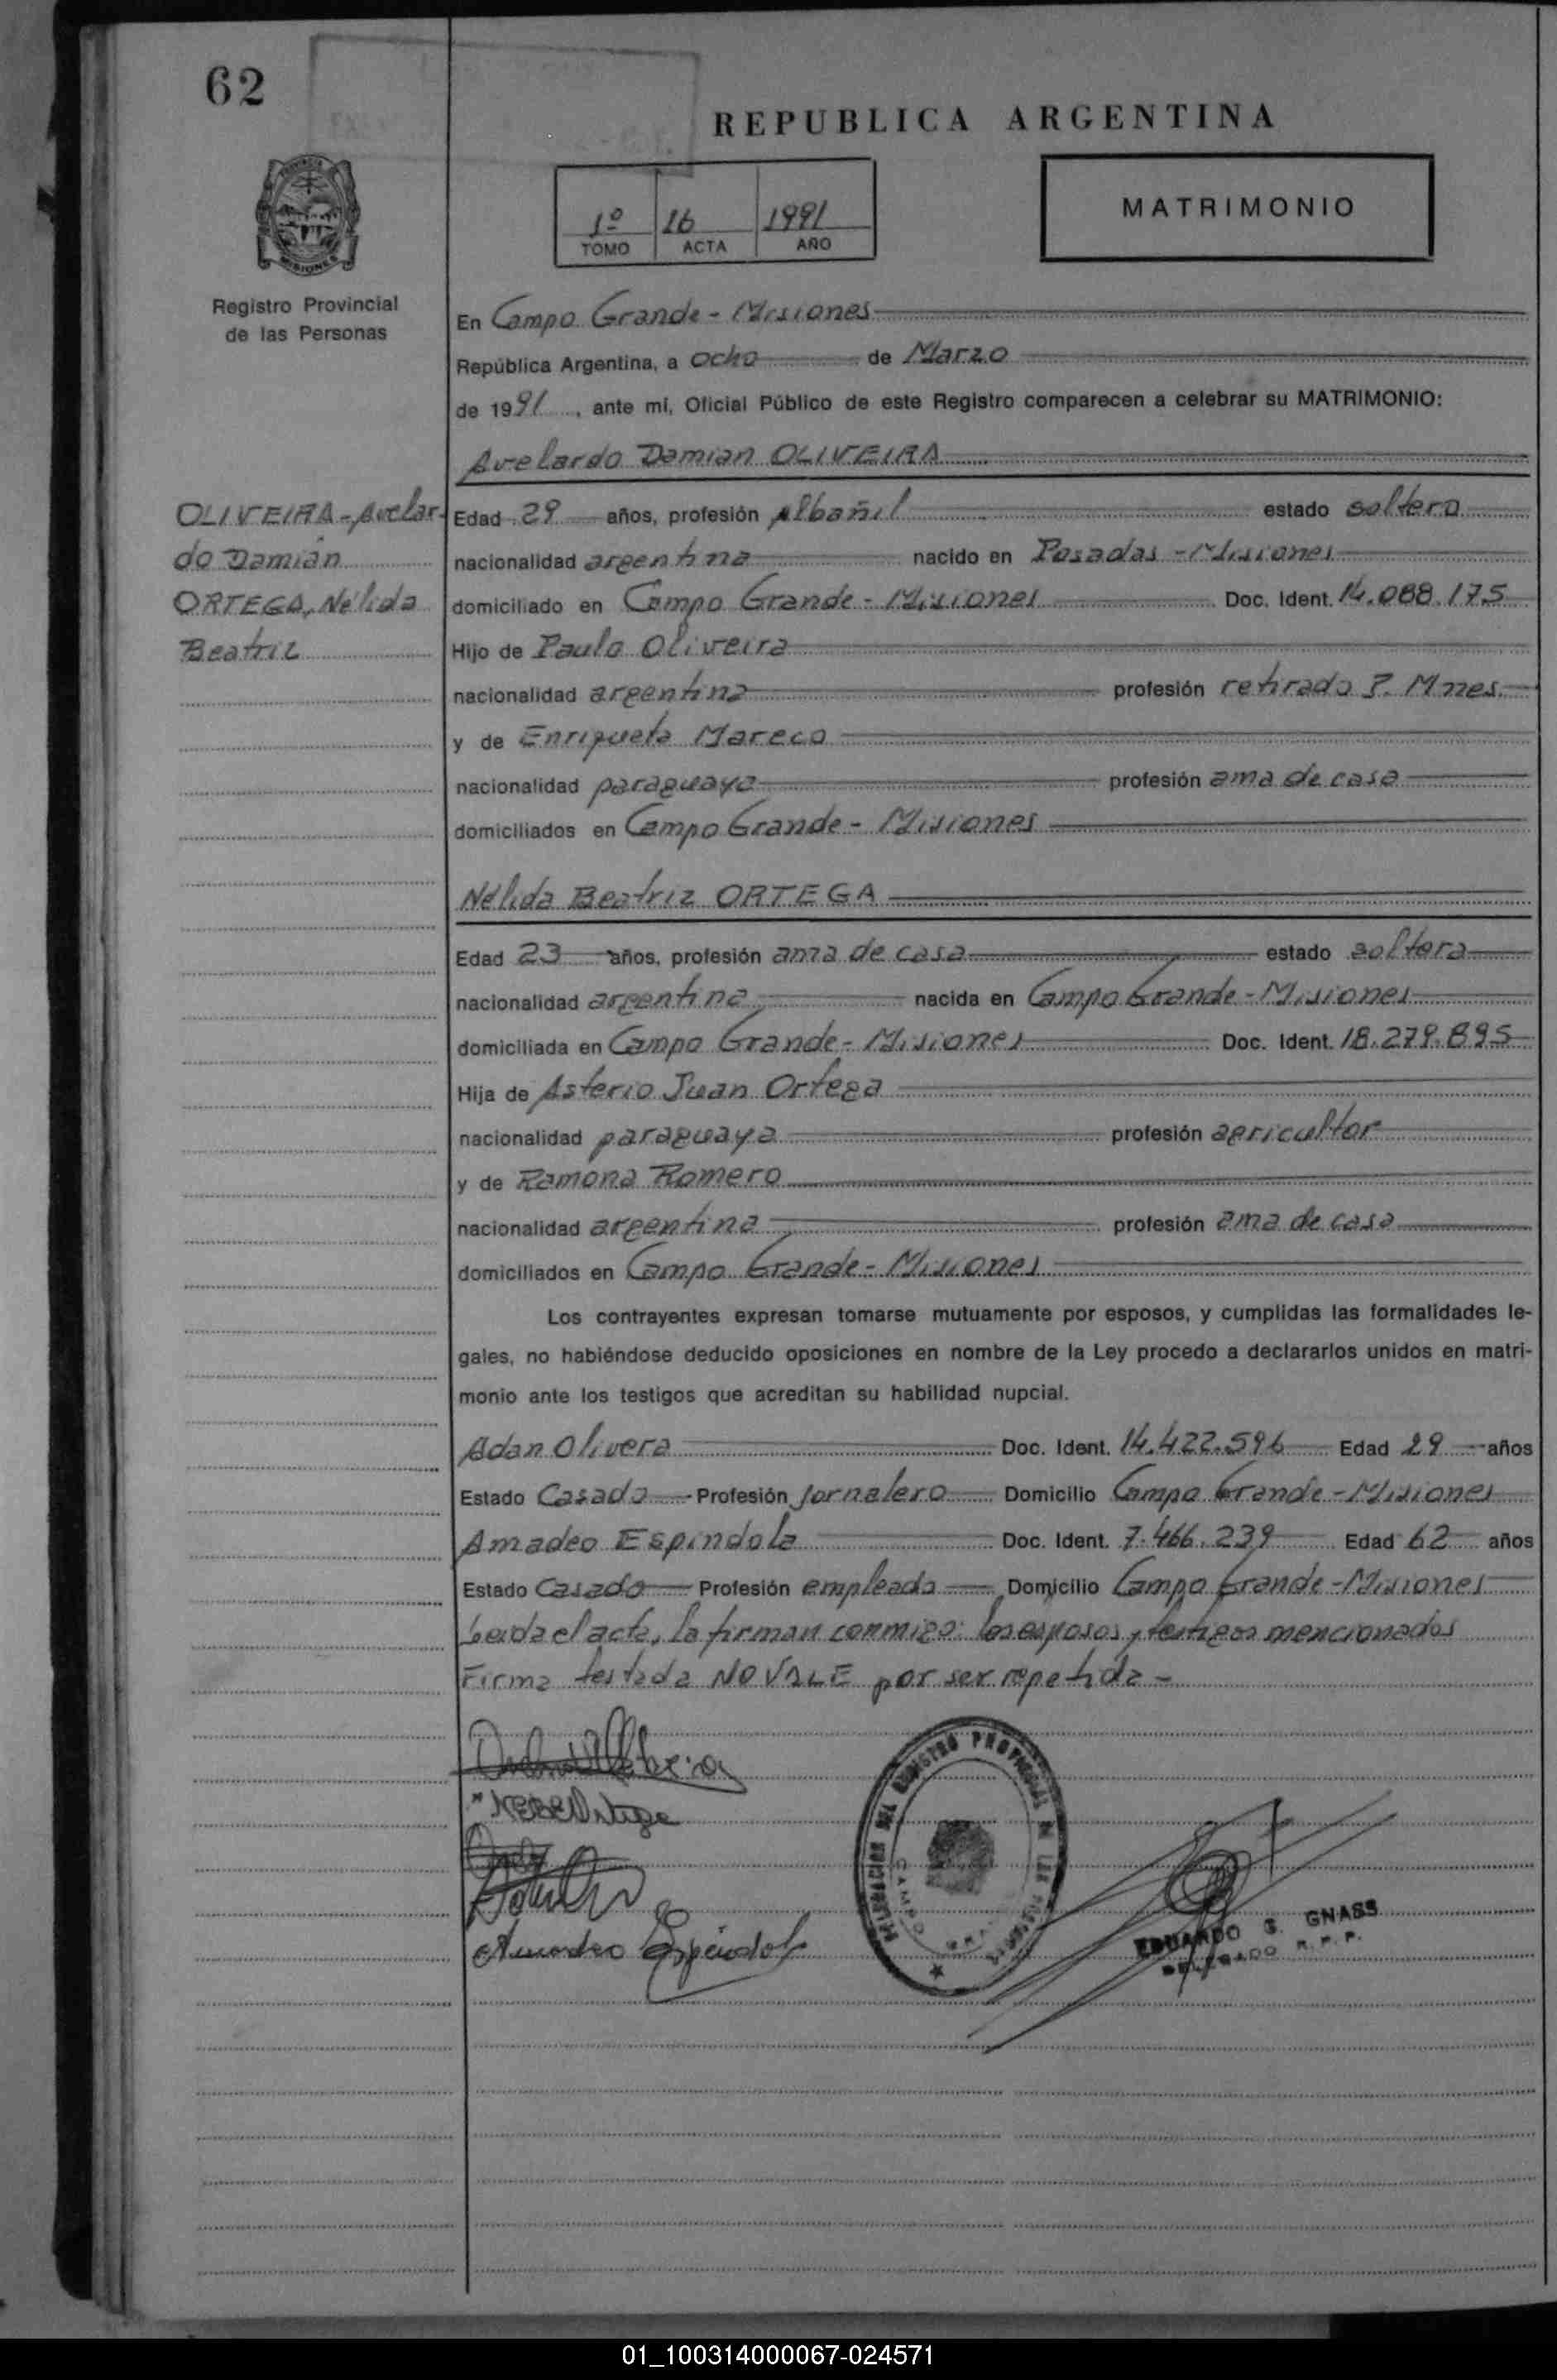 62
REPUBLICA ARGENTINA
1º 16 1991
TOMO ACTA AÑO
MATRIMONIO
Registro Provincial
de las Personas
En Campo Grande - Misiones
República Argentina, a ocho de Marzo
de 1991, ante mí, Oficial Público de este Registro comparecen a celebrar su MATRIMONIO:
Avelardo Damian OLIVEIRA
OLIVEIRA - Avelar-
do Damián
ORTEGA, Nélida
Beatriz
Edad 29 años, profesión Albañil estado soltero
nacionalidad argentina nacido en Posadas - Misiones
domiciliado en Campo Grande - Misiones Doc. Ident. 14.088.175
Hijo de Paulo Oliveira
nacionalidad argentina profesión retirado P. Mnes.
y de Enriqueta Mareco
nacionalidad paraguaya profesión ama de casa
domiciliados en Campo Grande - Misiones
Nélida Beatriz ORTEGA
Edad 23 años, profesión ama de casa estado soltera
nacionalidad argentina nacida en Campo Grande - Misiones
domiciliada en Campo Grande - Misiones Doc. Ident. 18.279.895
Hija de Asterio Juan Ortega
nacionalidad paraguaya profesión agricultor
y de Ramona Romero
nacionalidad argentina profesión ama de casa
domiciliados en Campo Grande - Misiones
Los contrayentes expresan tomarse mutuamente por esposos, y cumplidas las formalidades le-
gales, no habiéndose deducido oposiciones en nombre de la Ley procedo a declararlos unidos en matri-
monio ante los testigos que acreditan su habilidad nupcial.
Adan Olivera Doc. Ident. 14.422.596 Edad 29 años
Estado Casado Profesión Jornalero Domicilio Campo Grande - Misiones
Amadeo Espindola Doc. Ident. 7.466.239 Edad 62 años
Estado Casado Profesión empleado Domicilio Campo Grande - Misiones
Leida el acta, la firman conmigo: los esposos y testigos mencionados
Firma testada NO VALE por ser repetida -
Amadeo Espindola
EDUARDO S. GNASS
DELEGADO R. P. P.
01_100314000067-024571